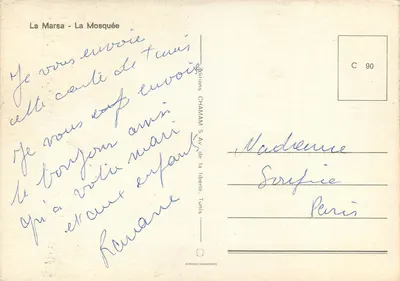 La Marsa - La Mosquée
Je vous envoie
cette carte de Tunis
Je vous envoie
le bonjour ainsi
qu'a votre mari
et aux enfants
Editions CHAMAM 5, Av. de la liberté - Tunis
C 90
Madame
Sonfice
Paris